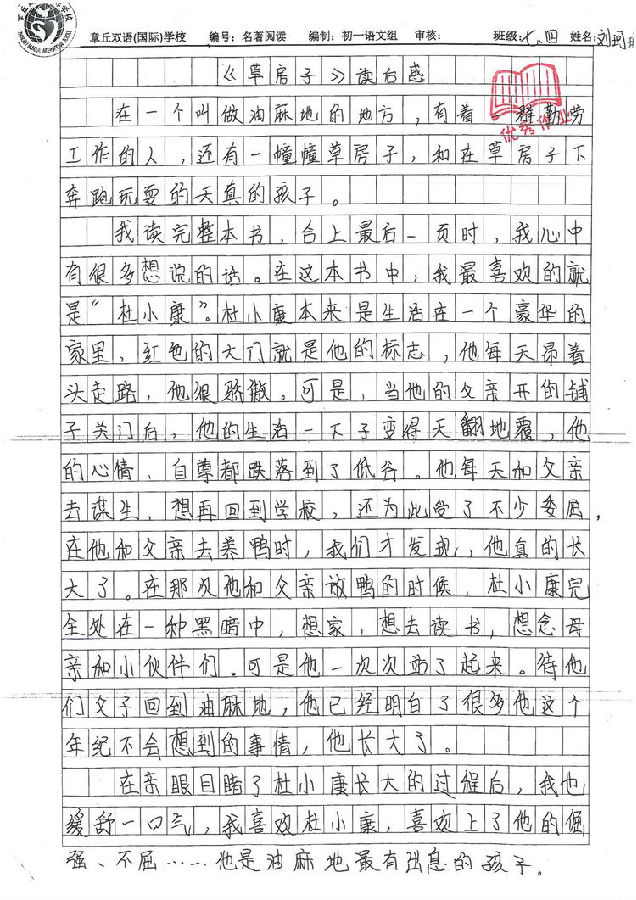 章丘双语(国际)学校 编号:名著阅读 编制:初一语文组 审核: 班级:七.四 姓名:刘珂
《草房子》读后感
优秀作业
在一个叫做油麻地的地方,有着一群勤劳
工作的人,还有一幢幢草房子,和在草房子下
奔跑玩耍的天真的孩子。
我读完整本书,合上最后一页时,我心中
有很多想说的话。在这本书中,我最喜欢的就
是“杜小康”。杜小康本来是生活在一个豪华的
家里,红色的大门就是他的标志,他每天昂着
头走路,他很骄傲。可是,当他的父亲开的铺
子关门后,他的生活一下子变得天翻地覆,他
的心情、自尊都跌落到了低谷。他每天和父亲
去谋生,想再回到学校,还为此受了不少委屈,
在他和父亲去养鸭时,我们才发现,他真的长
大了。在那次他和父亲放鸭的时候,杜小康完
全处在一种黑暗中,想家,想去读书,想念母
亲和小伙伴们。可是他一次次站了起来。待他
们父子回到油麻地,他已经明白了很多他这个
年纪不会想到的事情,他长大了。
在亲眼目睹了杜小康长大的过程后,我也
缓舒一口气,我喜欢杜小康,喜欢上了他的倔
强、不屈……他是油麻地最有出息的孩子。